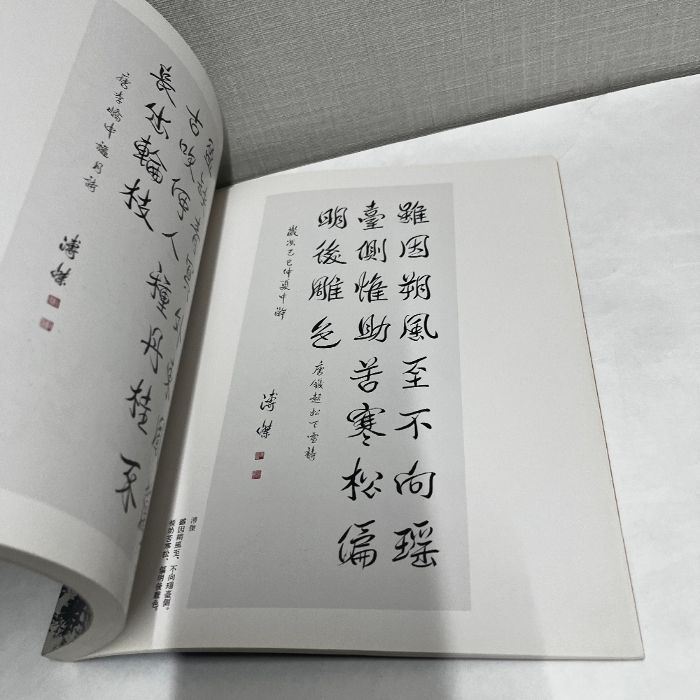 古吹何人種丹桂不
長出輪枝
唐李嶠中秋月詩
溥傑
雖因朔風至不向瑶
臺側惟助苦寒松偏
明後雕色
唐錢起松下雪詩
歲次己巳仲夏中澣
溥傑
溥傑
雖因朔風至、不向瑶臺側。
惟助苦寒松、偏明後雕色。